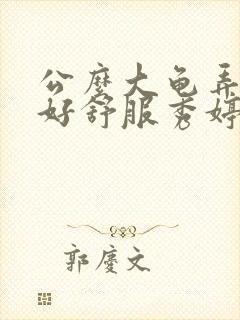 公麽大龟弄
好舒服秀婷
郭慶文